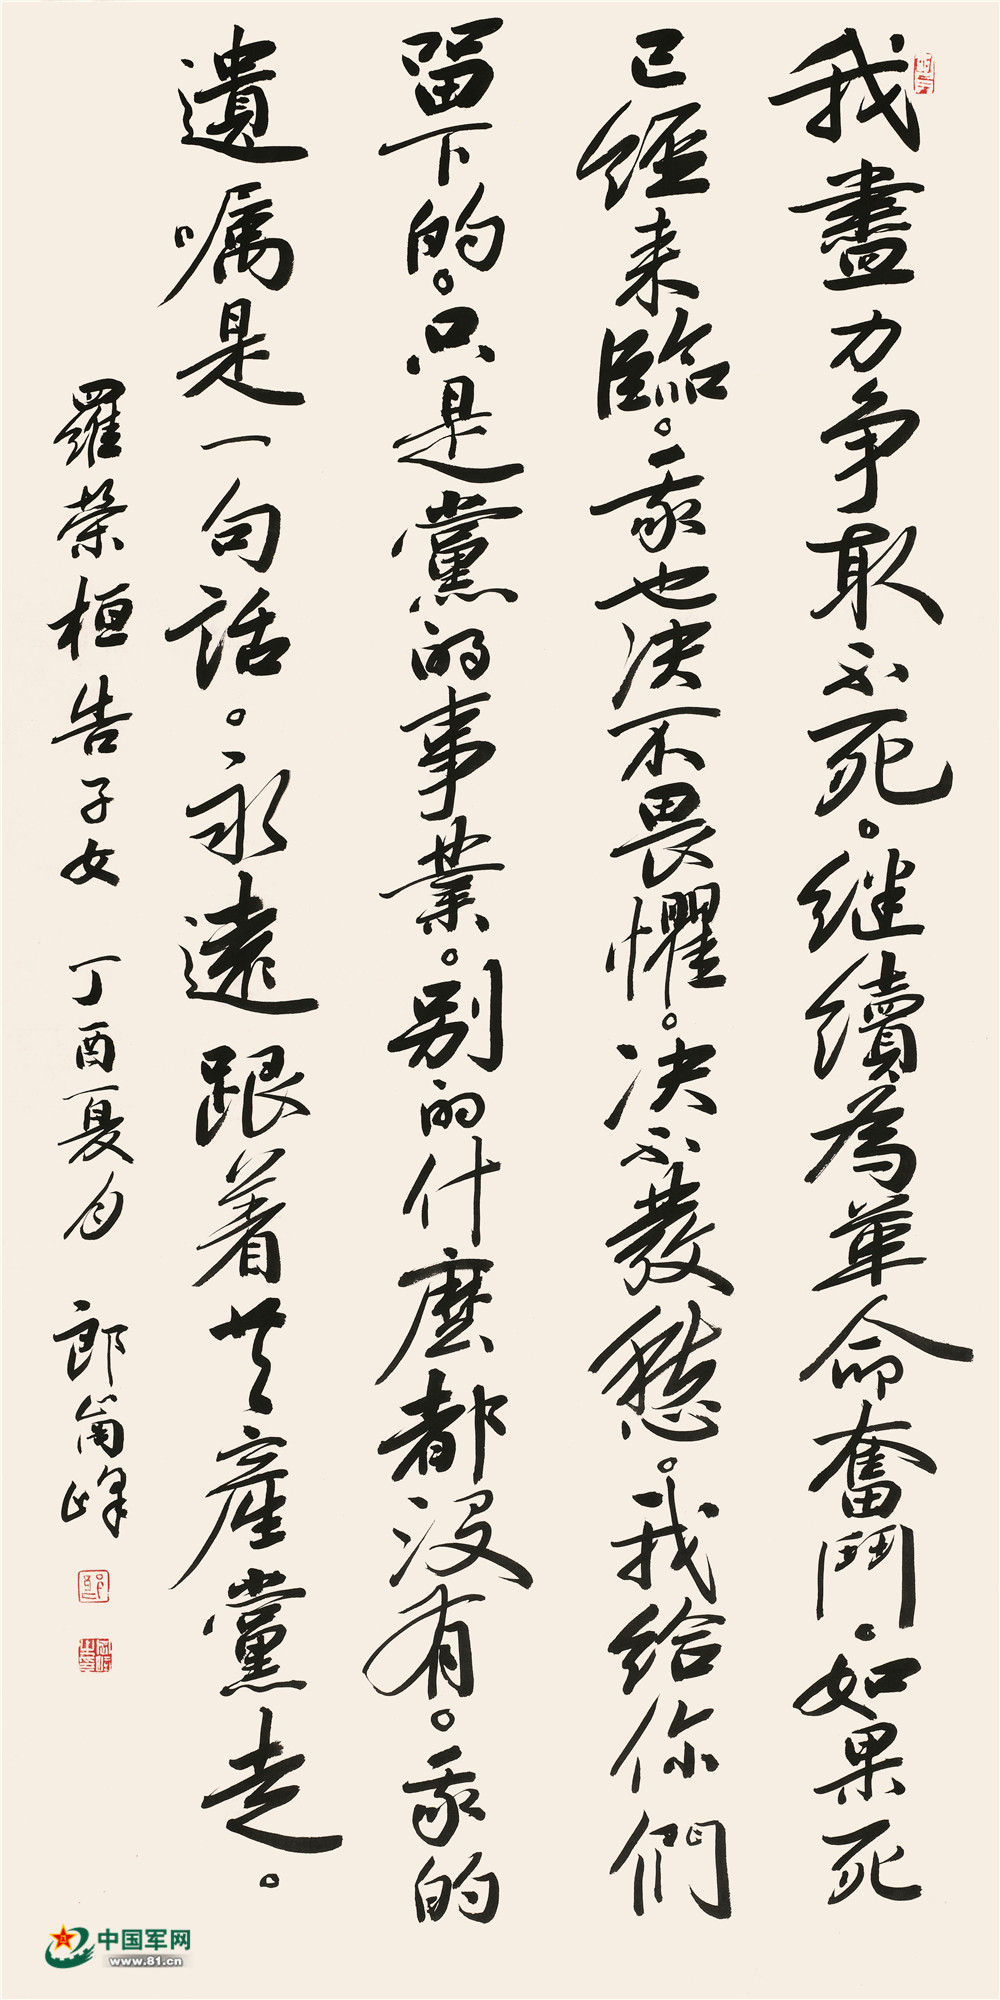 我盡力争取不死。继續為革命奮鬥。如果死
已經来臨。我也决不畏懼。决不發愁。我给你們
留下的。只是黨的事業。别的什麽都没有。我的
遺嘱是一句話。永遠跟着共産黨走。
羅榮桓告子女 丁酉夏月 郎峰
中国军网
www.81.cn